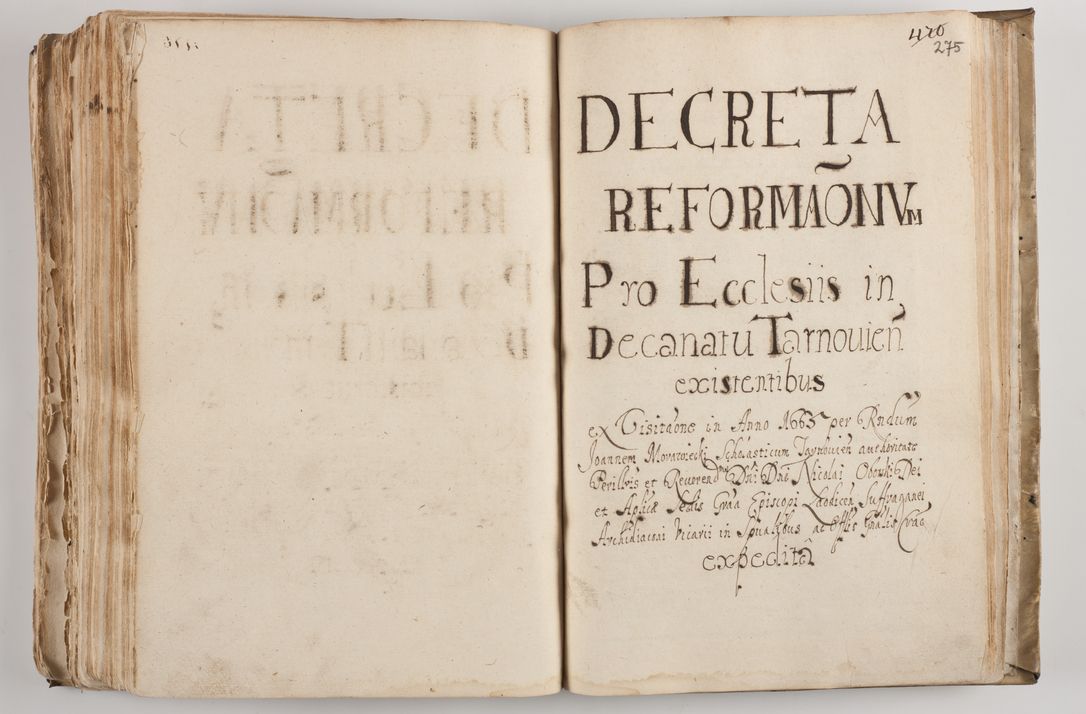 420
275
DECRETA
REFORMAO̅NVM
Pro Ecclesiis in
Decanatu Tarnouien̄
existentibus
ex Visitaōne in Anno 1663 per Rndum
Joannem Morawiecki Scholasticum Tarnouien authoritate
Perillris et Reverend Dn̄i Dn̄i Nicolai Oborski Dei
et Aplicæ Sedis Grãa Episcopi Laodicen Suffraganei
Archidiaconi Vicarii in Spualibus ac Offlis Gnalis Crac
expedita